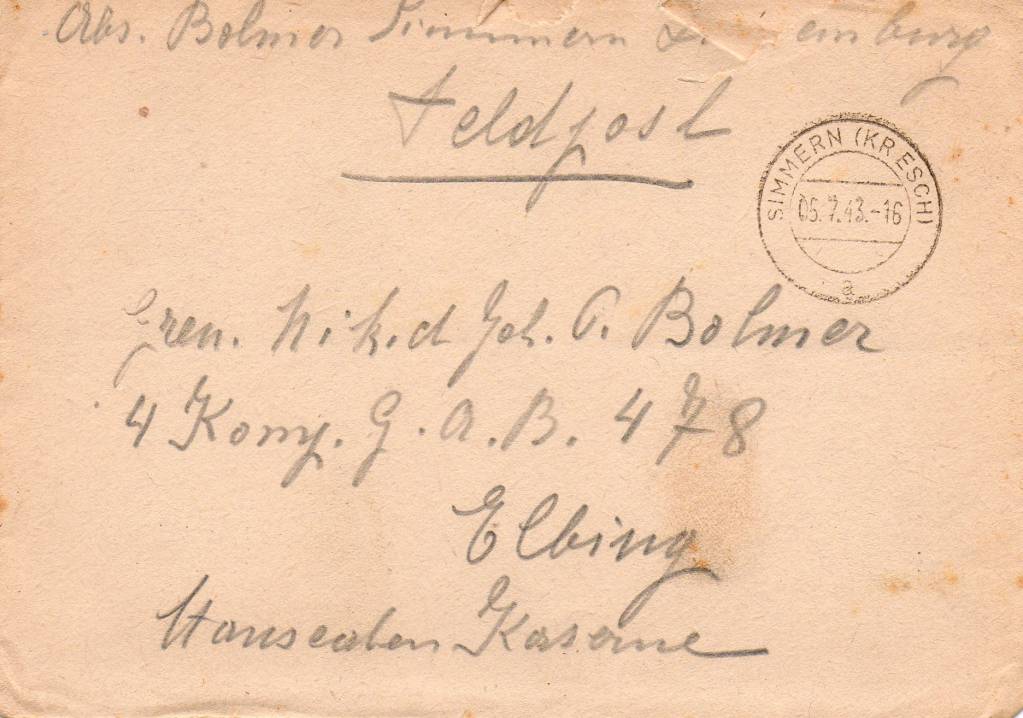 Abs. Bolmer Simmern
Feldpost
SIMMERN (KR ESCH)
05.7.43.-16
a
Gren. Nik. d Joh. P. Bolmer
4 Komp. G. A. B. 478
Elbing
Hanseaten Kaserne